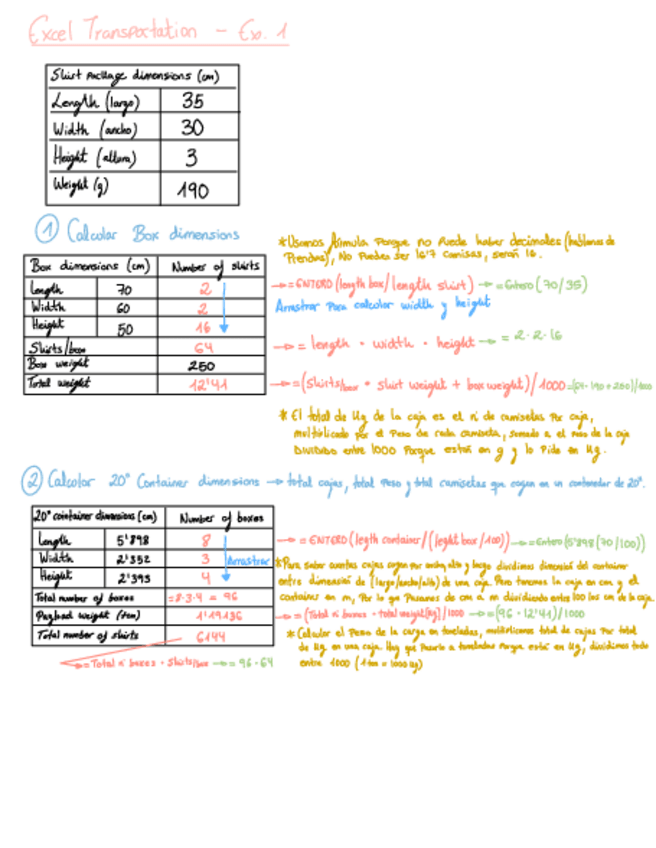 Excel Transportation - Ex. 1
Shirt package dimensions (cm)
Length (largo) 35
Width (ancho) 30
Height (altura) 3
Weight (g) 190
① Calcular Box dimensions
*Usamos fórmula porque no puede haber decimales (hablamos de
Prendas), No puedes ser 16'7 camisas, serán 16.
Box dimensions (cm) Number of shirts
Length 70 2 → = ENTERO (length box/length shirt) → = Entero (70/35)
Width 60 2 Arrastrar para calcular width y height
Height 50 16
Shirts/box 64 → = length · width · height → = 2·2·16
Box weight 250
Total weight 12'41 → = (shirts/box * shirt weight + box weight)/1000 = (64·190+250)/1000
* El total de Kg de la caja es el nº de camisetas por caja,
multiplicado por el peso de cada camiseta, sumado a el peso de la caja
DIVIDIDO entre 1000 Porque están en g y lo pide en Kg.
② Calcular 20" Container dimensions → total cajas, total peso y total camisetas que cogen en un contenedor de 20".
20" cointainer dimensions (cm) Number of boxes
Length 5'898 8 → = ENTERO (legth container/(leght box/100)) → = Entero (5'898(70/100))
Width 2'352 3 Arrastrar
Height 2'393 4
*Para saber cuantas cajas cogen por ancho, alto y largo dividimos dimensión del container
entre dimensión de (largo/ancho/alto) de una caja. Pero tenemos la caja en cm y el
container en m, Por lo que Pasamos de cm a m dividiendo entre 100 los cm de la caja.
Total number of boxes =8·3·4 = 96
Payload weight (ton) 1'19136 → = (Total nº boxes · total weight(kg))/1000 → = (96·12'41)/1000
Total number of shirts 6144
* Calcular el Peso de la carga en toneladas, multiplicamos total de cajas por total
de Kg en una caja. Hay que Pasarlo a toneladas porque está en Kg, dividimos todo
entre 1000 (1 tm = 1000 kg)
→ = Total nº boxes · shirts/box → = 96·64